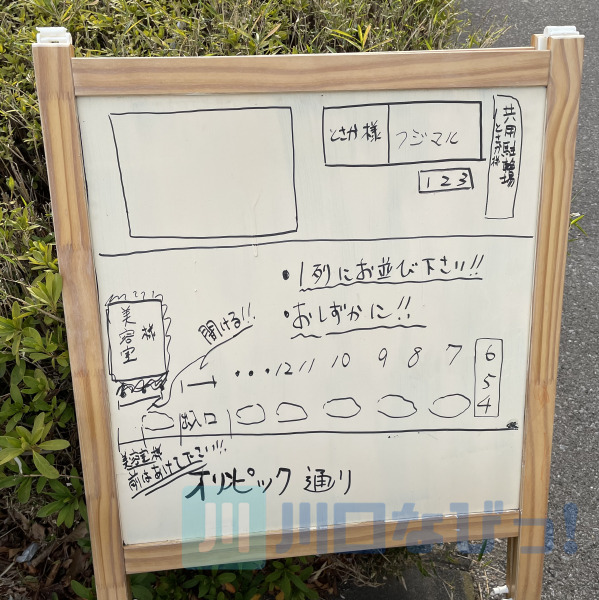 とさか様
フジマル
共用駐輪場
とさか様
1 2 3
・1列にお並び下さい!!
・おしずかに!!
美容室様
開ける!!
・・・12 11 10 9 8 7
6
5
4
出入口
美容室様
前はあけて下さい!!
オリンピック通り
川口なび